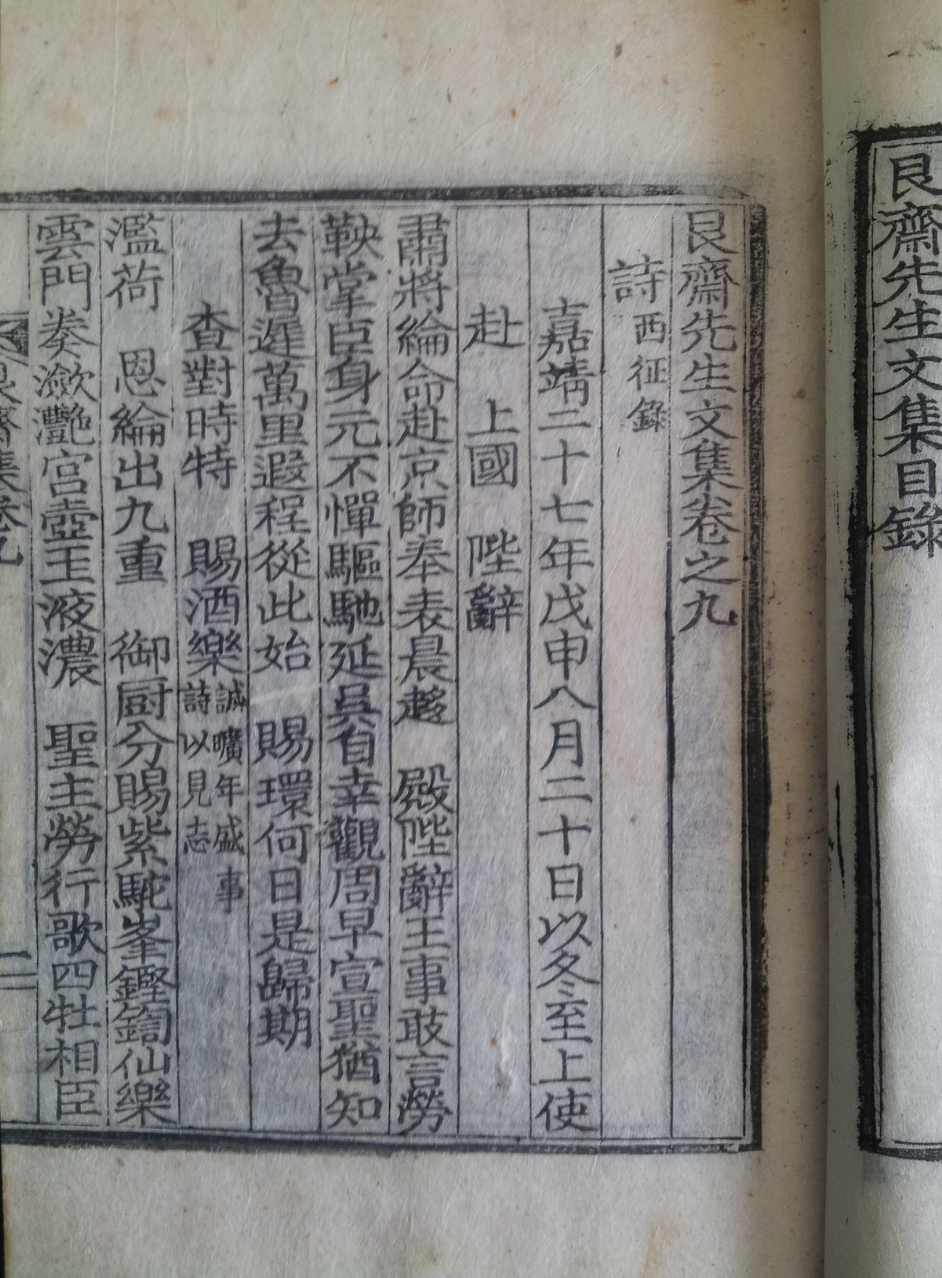 艮齋先生文集目錄
艮齋先生文集卷之九
詩 西征錄
嘉靖二十七年戊申八月二十日以冬至上使
赴 上國 陛辭
肅將綸命赴京師奉表晨趍 殿陛辭王事敢言勞
鞅掌臣身元不憚驅馳延吳自幸觀周早宣聖猶知
去魯遲萬里遐程從此始 賜環何日是歸期
查對時特 賜酒樂 誠曠年盛事
詩以見志
濫荷 恩綸出九重 御厨分賜紫駝峯鏗鍧仙樂
雲門奏瀲灩宫壺玉液濃 聖主勞行歌四牡相臣
艮齋集卷九
一